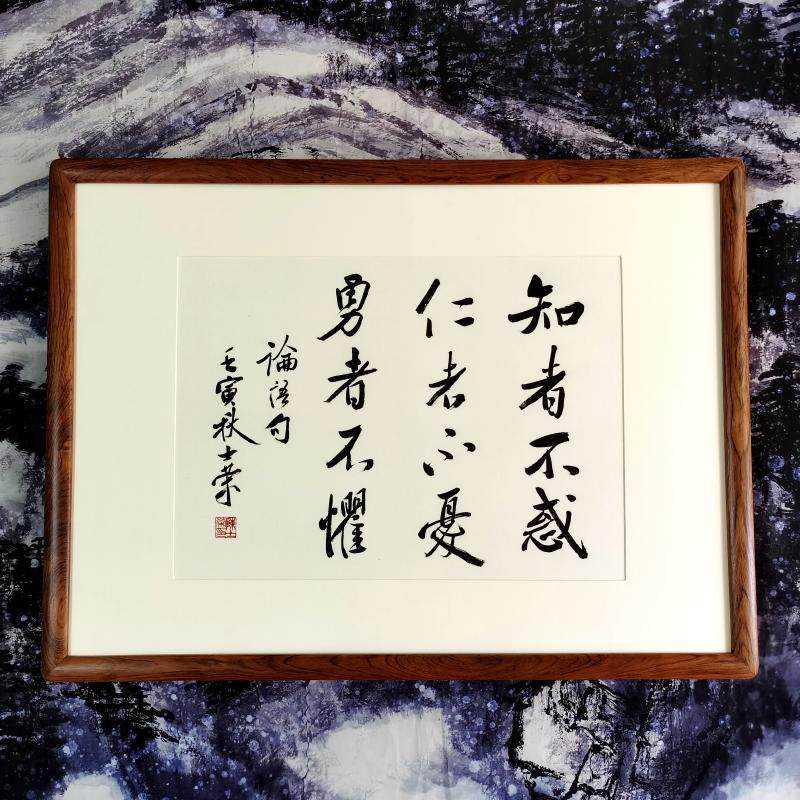 知者不惑
仁者不憂
勇者不懼
論語句
壬寅秋士榮